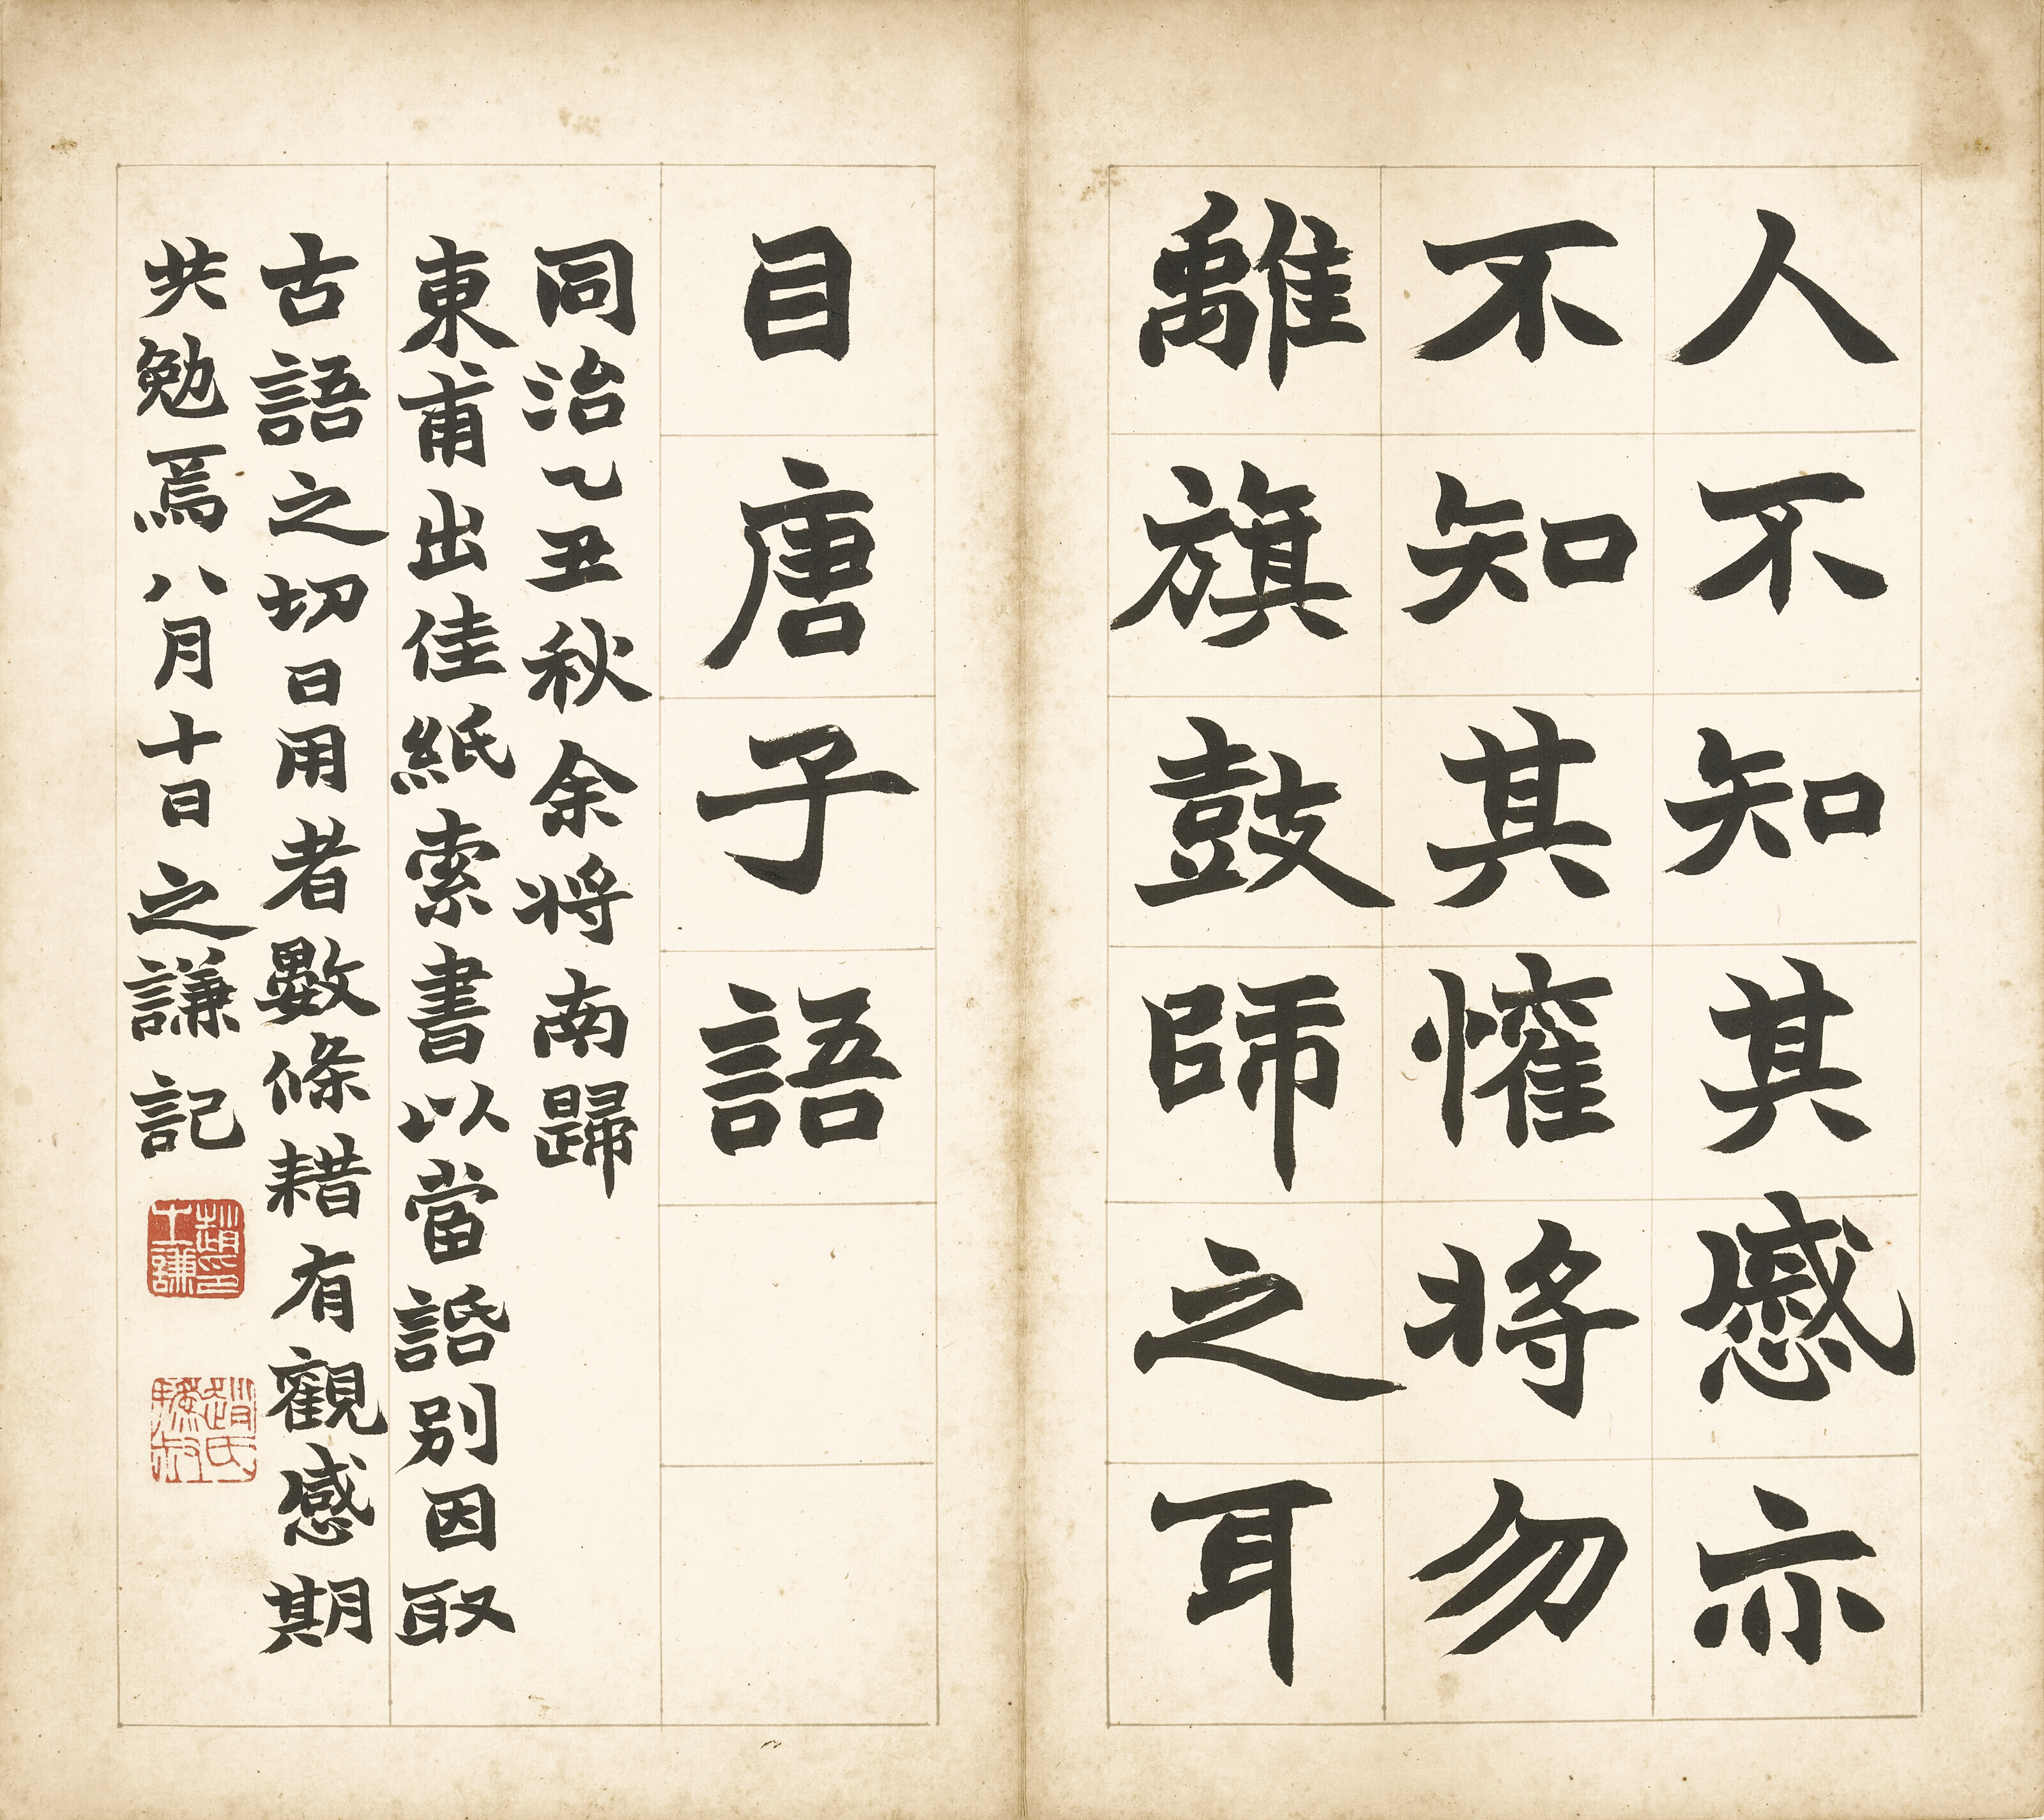 人不知其慼亦
不知其懽將勿
離旗鼓師之耳
目唐子語
同治乙丑秋余将南歸
東甫出佳紙索書以當話別因取
古語之切日用者數條耤有觀感期
共勉焉八月十日之謙記
趙印之謙